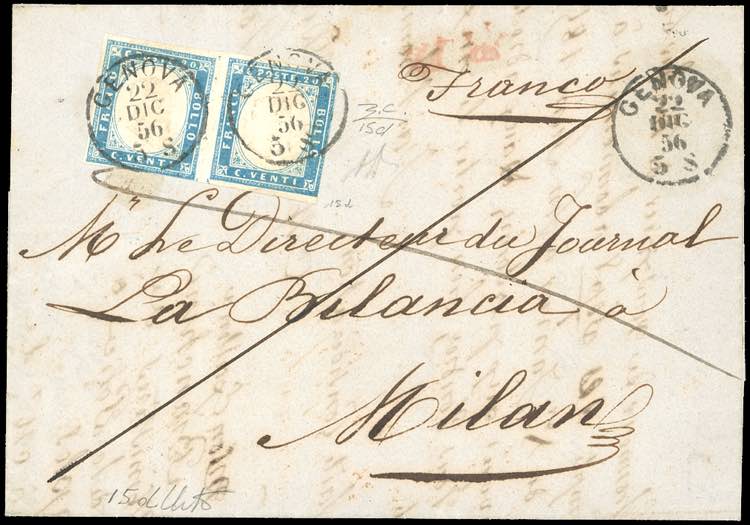 C. POSTE 20
FRANCO
BOLLO
C. VENTI
GENOVA
22
DIC
56
5 S
C. POSTE 20
FRANCO
BOLLO
C. VENTI
GENOVA
22
DIC
56
5 S
Franco
GENOVA
22
DIC
56
5 S
15d
15d
Mr Le Directeur du Journal
La Bilancia à
Milan
15d